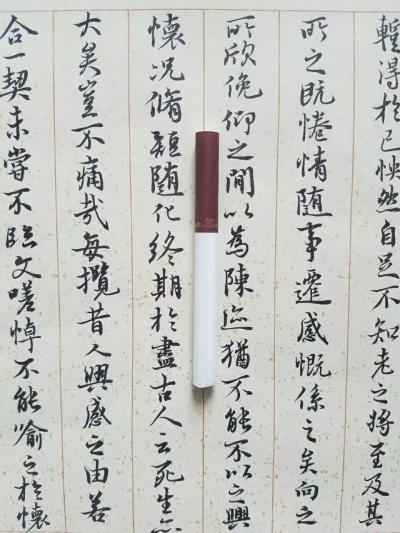 暫得於己怏然自足不知老之將至及其
所之既惓情隨事遷感慨係之矣向之
所欣俛仰之間以為陳迹猶不能不以之興
懷况脩短隨化終期於盡古人云死生亦
大矣豈不痛哉每攬昔人興感之由若
合一契未嘗不臨文嗟悼不能喻之於懷